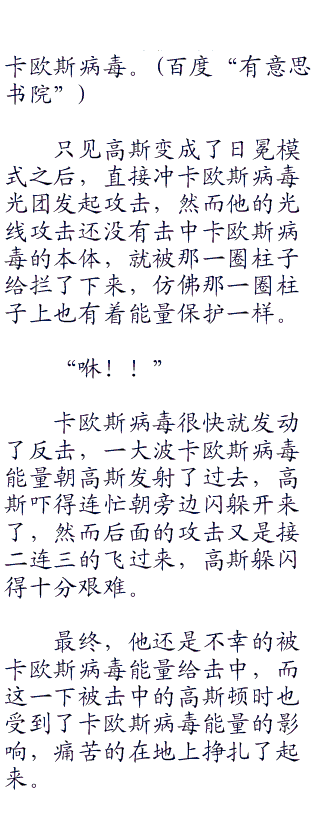 卡欧斯病毒。(百度“有意思
书院”)
只见高斯变成了日冕模
式之后，直接冲卡欧斯病毒
光团发起攻击，然而他的光
线攻击还没有击中卡欧斯病
毒的本体，就被那一圈柱子
给拦了下来，仿佛那一圈柱
子上也有着能量保护一样。
“咻！！”
卡欧斯病毒很快就发动
了反击，一大波卡欧斯病毒
能量朝高斯发射了过去，高
斯吓得连忙朝旁边闪躲开来
了，然而后面的攻击又是接
二连三的飞过来，高斯躲闪
得十分艰难。
最终，他还是不幸的被
卡欧斯病毒能量给击中，而
这一下被击中的高斯顿时也
受到了卡欧斯病毒能量的影
响，痛苦的在地上挣扎了起
来。